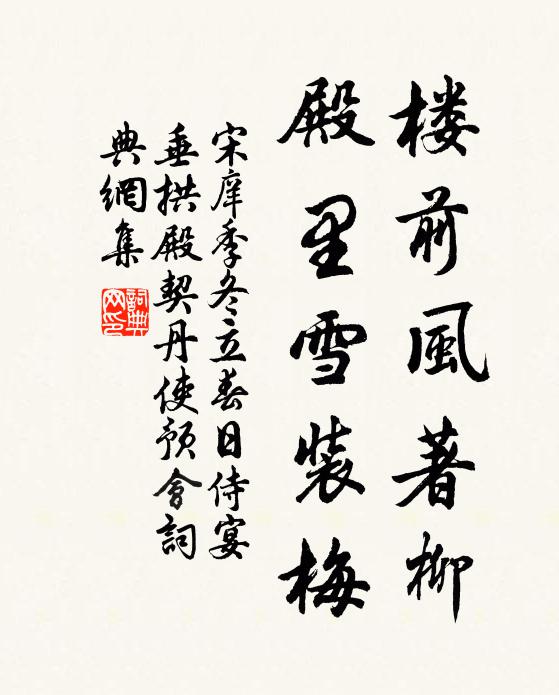 楼前風著柳
殿里雪裝梅
宋庠季冬立春日侍宴
垂拱殿契丹使預會詞
典網集
詞典
网印